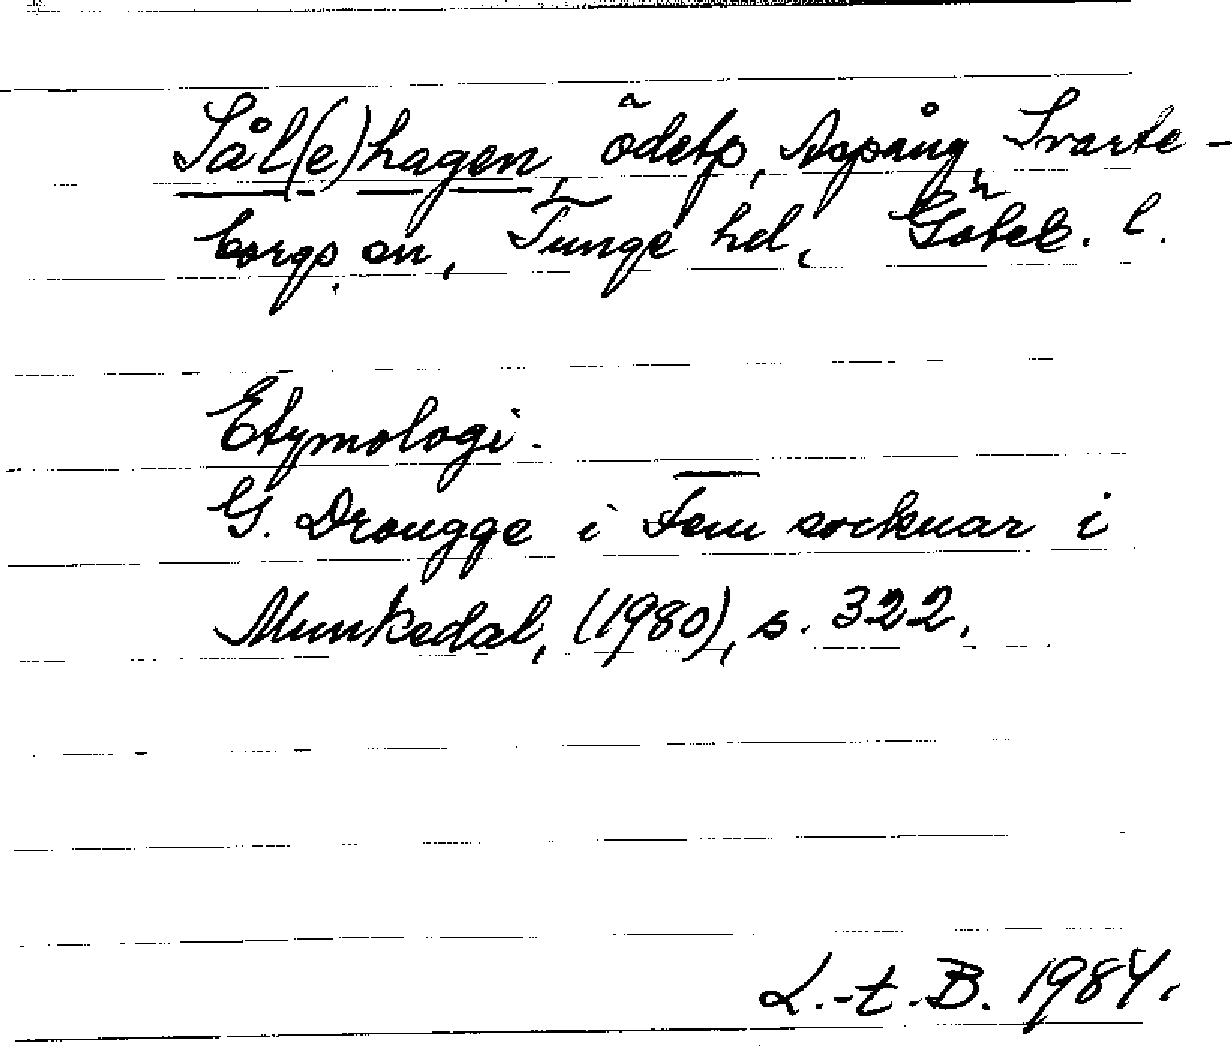 Sål(e)hagen, ödetp, Aspäng, Svarte-
borgs sn, Tunge hd, Göteb. l.
Etymologi.
G. Drougge i Fem socknar i
Munkedal, (1980), s. 322.
L.-t.-B. 1984.